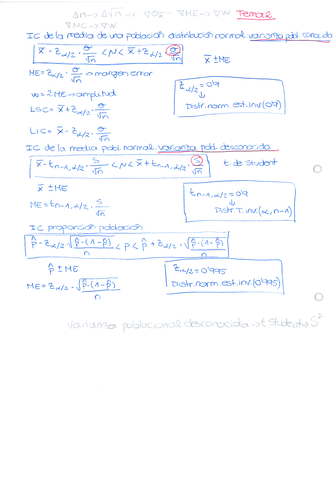 Δn → Δ√n → ∇σx̄ → ∇ME → ∇W Tema 2
∇NC → ∇W
IC de la media de una población distribución normal varianza pobl. conocida
x̄ - Zα/2 · σ/√n < N < x̄ + Zα/2 · σ/√n x̄ ± ME
ME = Zα/2 · σ/√n → margen error
Zα/2 = 0'9
↓
Distr. norm. est. inv (0'9)
w = 2ME → amplitud
LSC = x̄ + Zα/2 · σ/√n
LIC = x̄ - Zα/2 · σ/√n
IC de la media pobl. normal varianza pobl. desconocida
x̄ - tn-1, α/2 · S/√n < N < x̄ + tn-1, α/2 · S/√n t. de student
x̄ ± ME
ME = tn-1, α/2 · S/√n
tn-1, α/2 = 0'9
↓
Distr. T. inv (α, n-1)
IC proporción población
p̂ - Zα/2 · √p̂·(1-p̂)/n < p < p̂ + Zα/2 · √p̂·(1-p̂)/n
p̂ ± ME
ME = Zα/2 · √p̂·(1-p̂)/n
Zα/2 = 0'995
Distr. norm. est. inv (0'995)
varianza poblacional desconocida → t student → S²